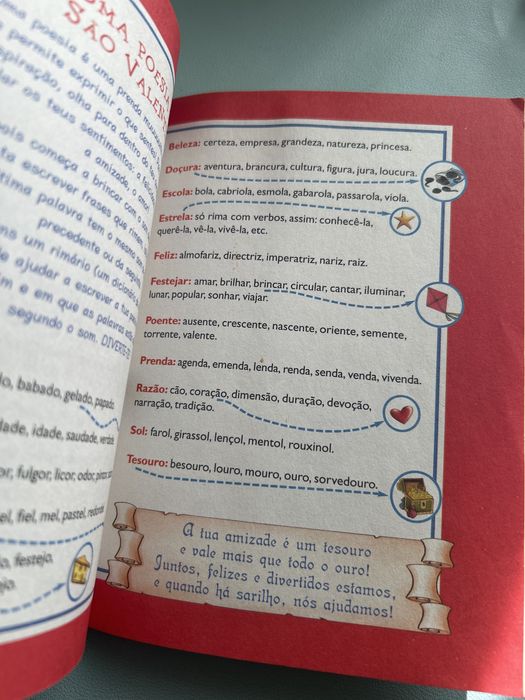 UMA POESIA
SÃO VALEN
ma poesia é uma prenda
permite exprimir o que sentes
spiração, olha para dentro de
os teus sentimentos: a
a amizade, o amor
começa a brincar com
escrever frases que rimem
última palavra tem o mesmo
precedente ou da
um rimário (um dicionário
ajudar a escrever a tua
m e em que as palavras
segundo o som.
do, babado, gelado, papado
dade, idade, saudade, verdade
or, fulgor, licor, odor,
el, fiel, mel, pastel,
o, festejo,
ejo.
Beleza: certeza, empresa, grandeza, natureza, princesa.
Doçura: aventura, brancura, cultura, figura, jura, loucura.
Escola: bola, cabriola, esmola, gabarola, passarola, viola.
Estrela: só rima com verbos, assim: conhecê-la,
querê-la, vê-la, vivê-la, etc.
Feliz: almofariz, directriz, imperatriz, nariz, raiz.
Festejar: amar, brilhar, brincar, circular, cantar, iluminar,
lunar, popular, sonhar, viajar.
Poente: ausente, crescente, nascente, oriente, semente,
torrente, valente.
Prenda: agenda, emenda, lenda, renda, senda, venda, vivenda.
Razão: cão, coração, dimensão, duração, devoção,
narração, tradição.
Sol: farol, girassol, lençol, mentol, rouxinol.
Tesouro: besouro, louro, mouro, ouro, sorvedouro.
A tua amizade é um tesouro
e vale mais que todo o ouro!
Juntos, felizes e divertidos estamos,
e quando há sarilho, nós ajudamos!